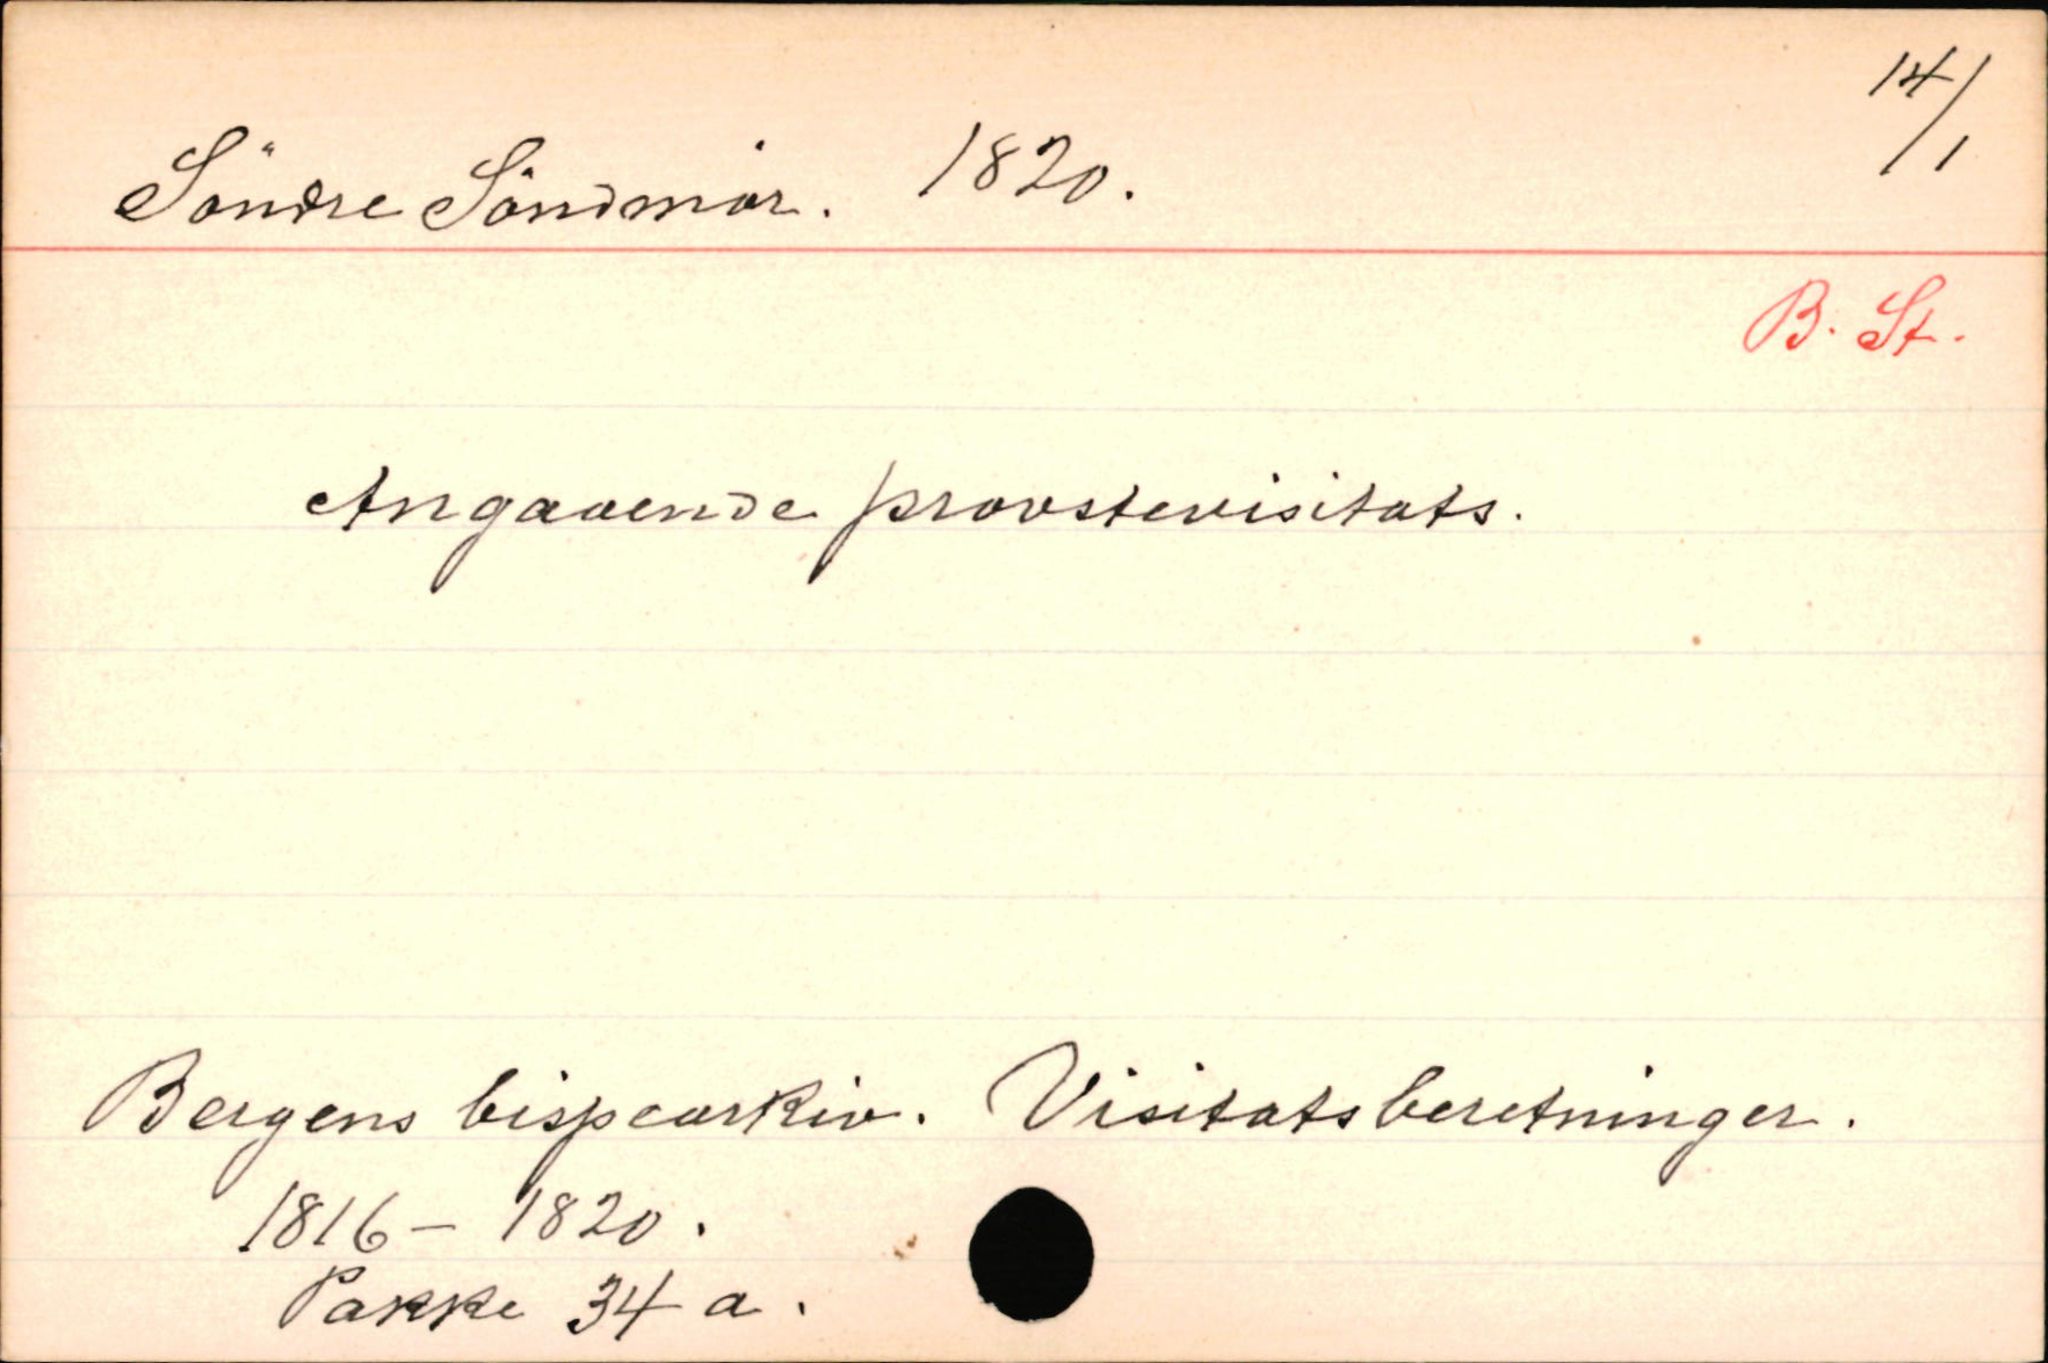 14/1
Söndre Söndmör. 1820.
B. St.
Angaaende provstevisitats.
Bergens bispearkiv. Visitatsberetninger.
1816 - 1820.
Pakke 34 a.